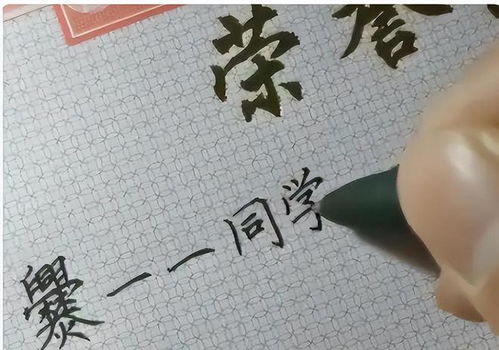 荣誉
爨一一同学